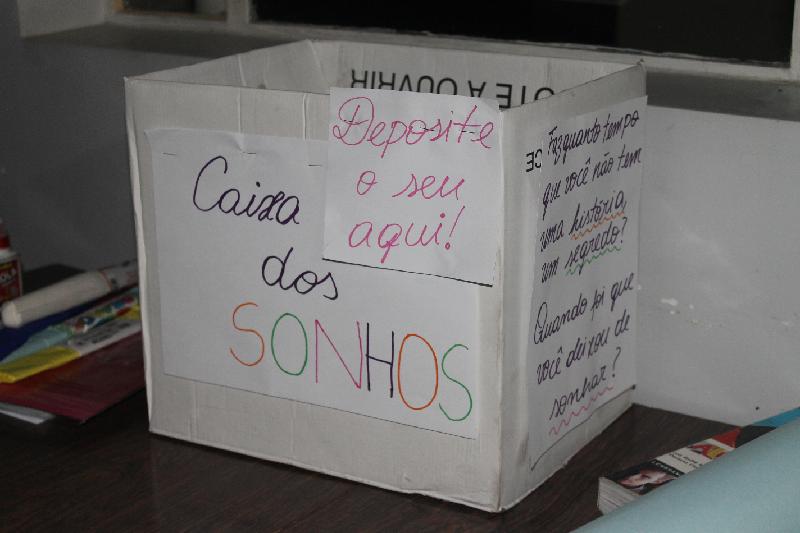 OTE A OUVRIR
Deposite
o seu
aqui!
Caixa
dos
SONHOS
CE
Faz quanto tempo
que você não tem
uma história,
um segredo?
Quando foi que
você deixou de
sonhar?